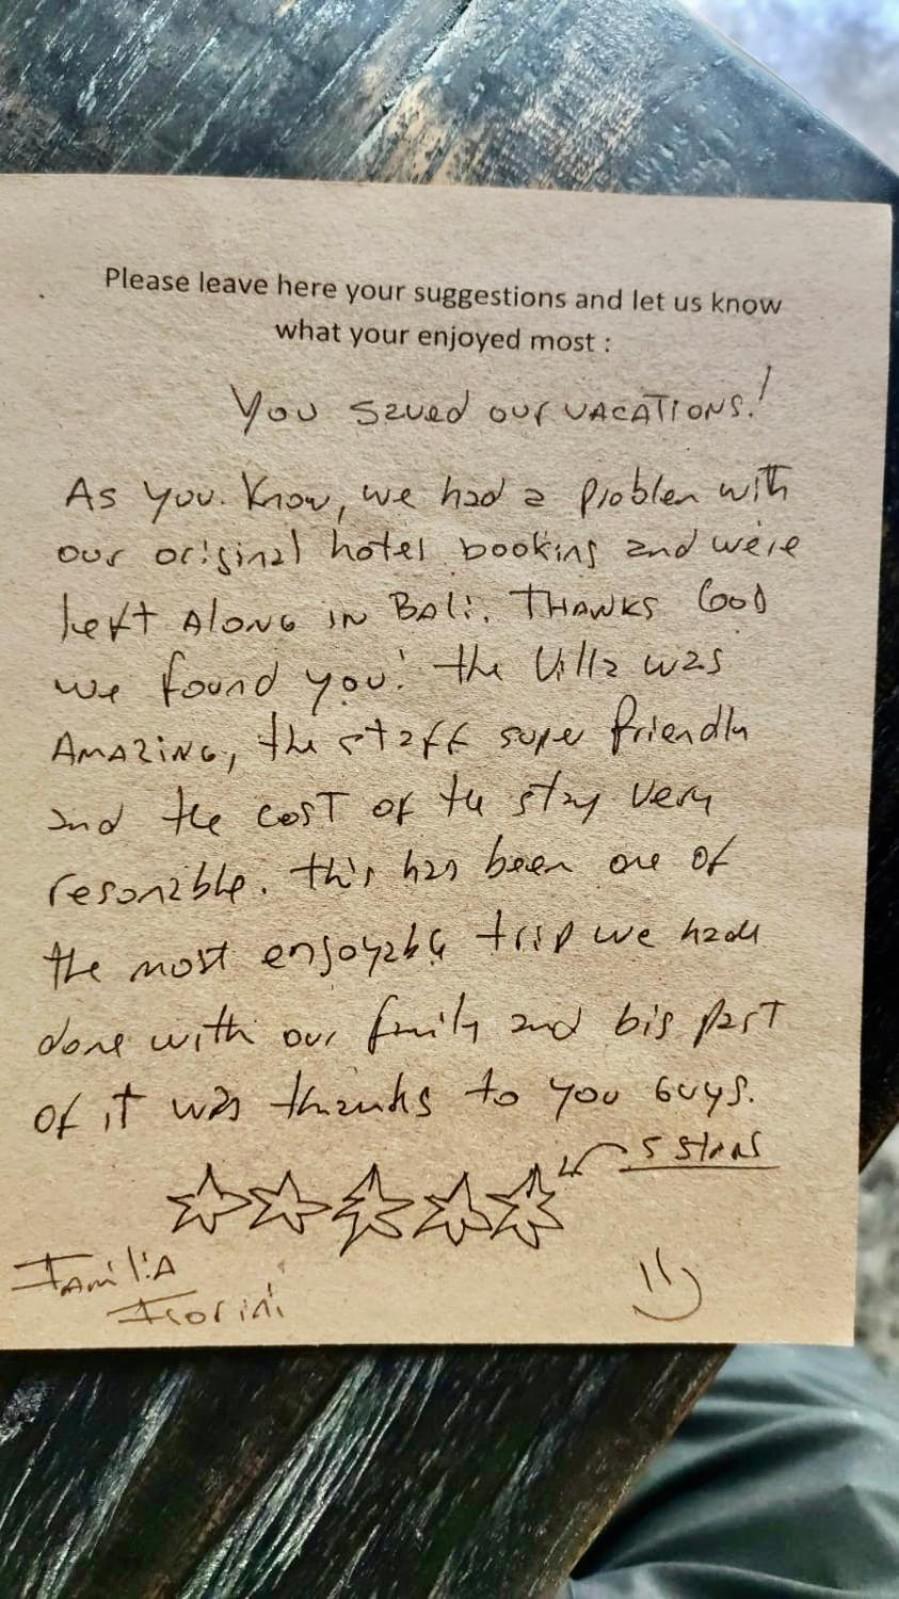 Please leave here your suggestions and let us know
what your enjoyed most :
You saved our vacations!
As you know, we had a problem with
our original hotel booking and were
left along in Bali. Thanks God
we found you! the Villa was
Amazing, the staff super friendly
and the cost of the stay very
resonable. this has been one of
the most enjoyable trip we have
done with our family and big part
of it was thanks to you guys.
5 stars
Familia
Fiorini